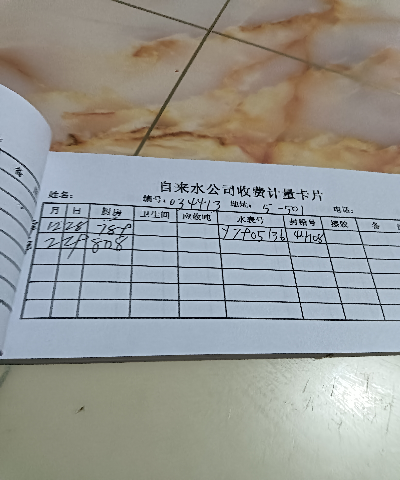 自来水公司收费计量卡片
姓名: 编号: 034413 地址: 5-501 电话:
月 日 厨房 卫生间 应收吨 水表号 封箱号 接收 备
12 28 789 Y7905136 41108
2 29 808